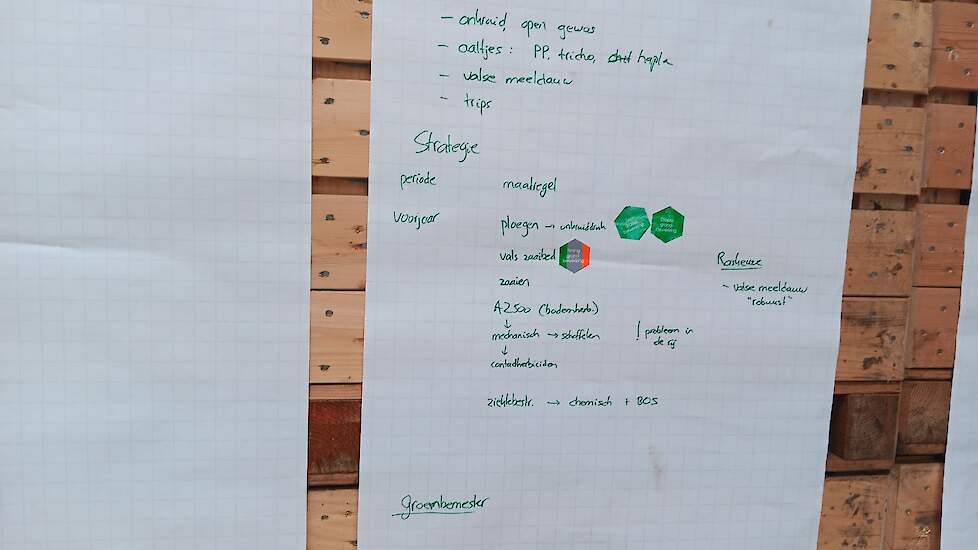 - onkruid, open gewas
- aaltjes : PP, tricho, hapla
- valse meeldauw
- trips
Strategie
periode maatregel
voorjaar ploegen → onkruiddruk
vals zaaibed
Timing grond bewerking
Diepte grond bewerking
zaaien
Raskeuze
- valse meeldauw
"robuust"
AZ500 (bodemherb.)
↓
mechanisch → schoffelen
! probleem in
de rij
↓
contactherbiciden
ziektebestr. → chemisch + BOS
Groenbemester